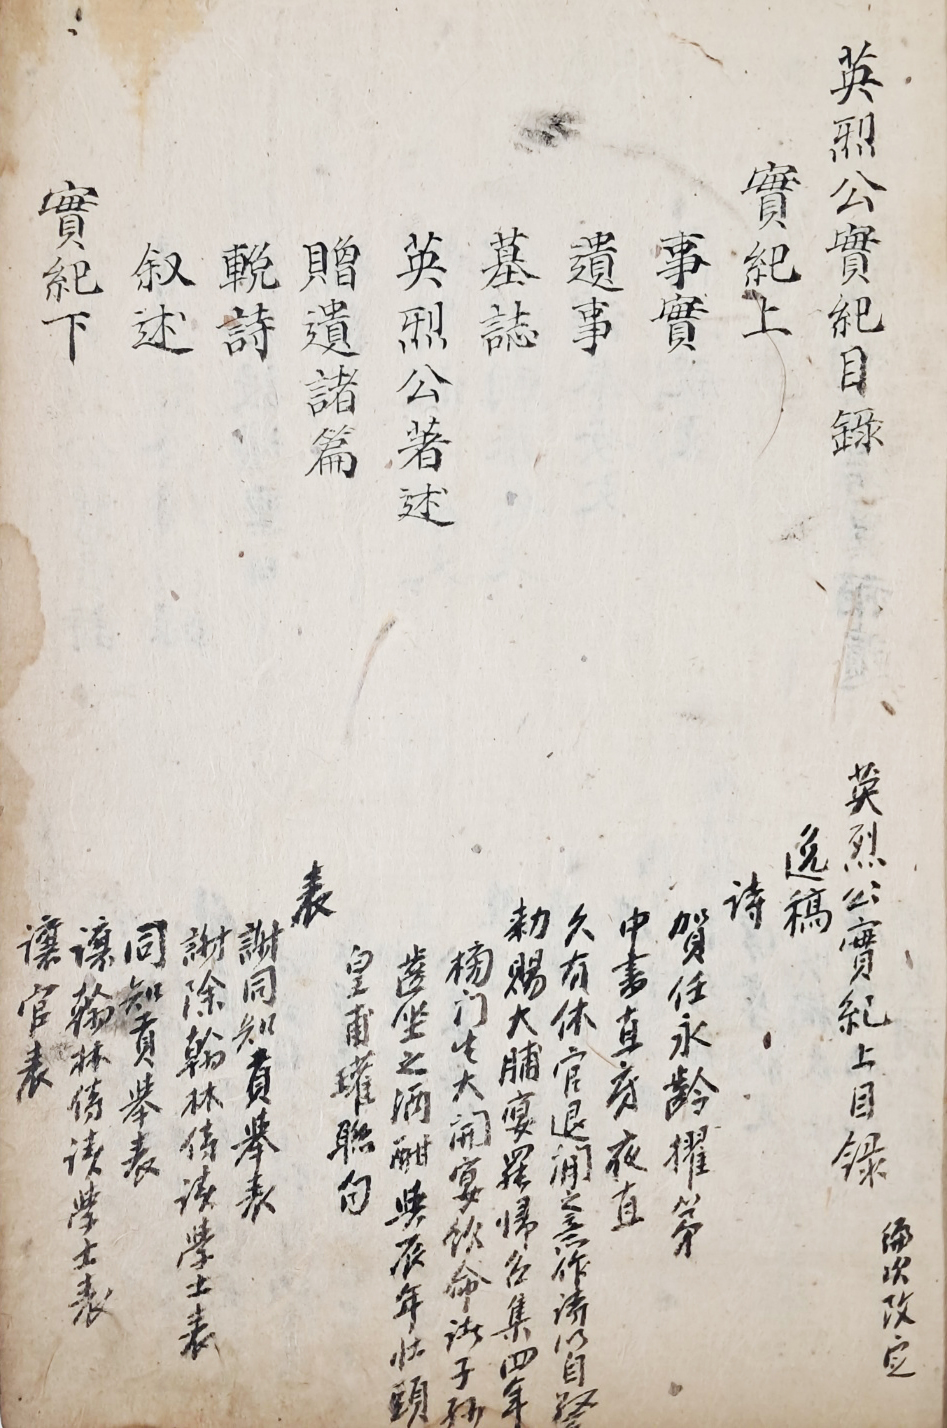 英烈公實紀目錄
實紀上
事實
遺事
墓誌
英烈公著述
贈遺諸篇
輓詩
叙述
實紀下
英烈公實紀上目録
編次改定
逸稿
詩
賀任永齡擢第
中書直廬夜直
久有休官退閑之意作詩以自
勅賜大酺宴罷帰各集四年
榜门生大開宴飲命諸子孫
齒坐之酒酣與辰年壯頭
皇甫瓘聯句
表
謝同知貢舉表
謝除翰林侍讀學士表
同知貢舉表
讓翰林侍讀學士表
讓官表